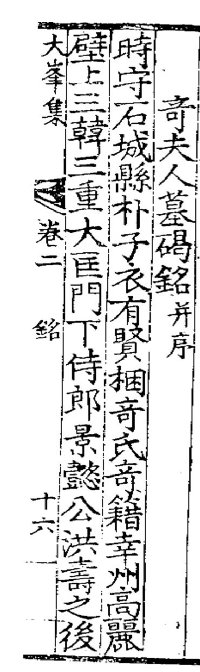 奇夫人墓碣銘并序
時守石城縣朴子衣有賢梱奇氏奇籍幸州高麗
壁上三韓三重大匡門下侍郎景懿公洪壽之後
大峯集 卷二 銘 十六